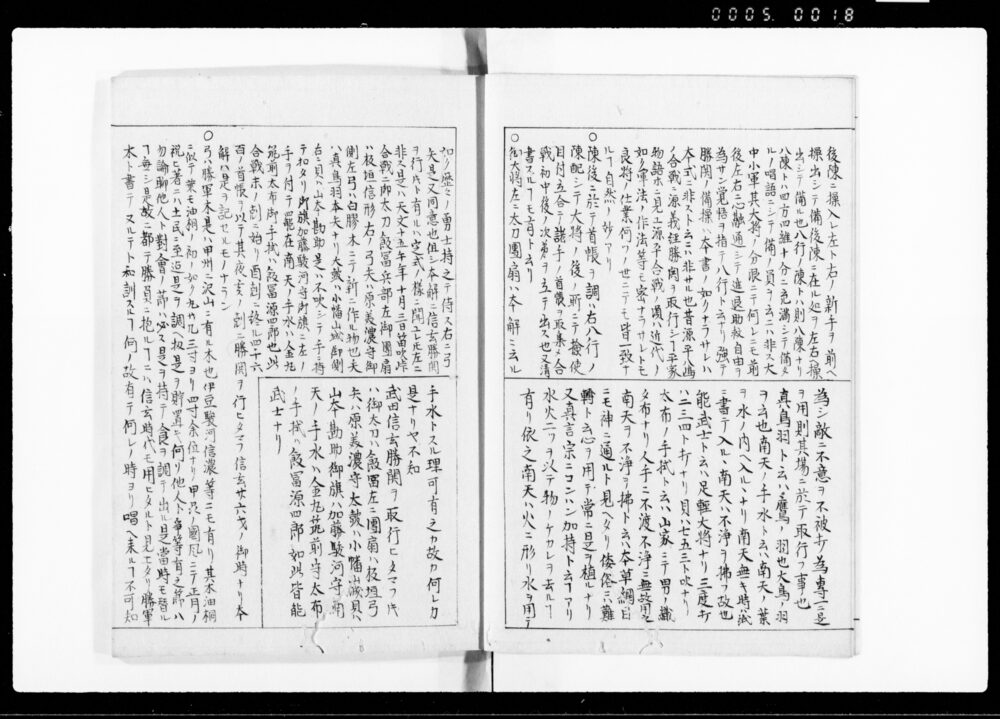 0005. 0018
後陳ニ操入レ左ト右ノ新手ヲ前ヘ
操出シテ備後陳ニ在ル処ヲ左右ヘ操
出シテ備ル也八行ノ陳ト八則八陳ナリ
八陳トハ四方四維十分ニ充満シテ備タ
ルノ唱語ニシテ備ノ員ヲ云ニハ非ス大
中小軍其大将ノ分限ニテ何レニモ前
後左右心融通シテ進退助救自由ヲ
為サン覚悟ヲ指テ八行ト云ナリ強テ
勝閧ノ備操ハ本書ノ如クナラサレハ
本式ニ非スト云ニハ非サル也昔源平ノ嶋
ノ合戦ニ源氏義経勝閧ヲ取行シ「平家
物語ホニ見ユ源平合戦ノ頃ハ近代ノ
如ク軍法ノ作法等モ密ナラサレトモ
良将ノ仕業何ツノ世ニテモ皆一致ナ
ル「自然ノ妙アリ
○陳後ニ於テ首帳ヲ調ハ右八行ノ
陳配テ大将ノ後ノ所ニテ検使
目付立合テ諸手ノ首帳ヲ取集メ合
戦ノ初中後ノ次第ヲ立テ出ス也又清
書スル「モ有ト云リ
○御大将左ニ太刀團扇ハ本解ニ云ル
為シ敵ニ不意ヲ不被打為専ニ是
ヲ用則其場ニ於テ取行フ事也
真鳥羽ト云ハ鷹ノ羽也大鳥ノ羽
ヲ云也南天ノ手水ト云ハ南天ノ葉
ヲ水ノ内ヘ入ルナリ南天無キ時ハ武
ニ書テ入ル、南天ハ不浄ヲ拂フ故也
能武士ト云ハ足軽大将ナリ三度打
ハ二三四ト打ナリ貝ハ七五三ト吹ナリ
太布ノ手拭ト云ハ山家ニテ男ノ織
タ布ナリ人手ニ不渡不浄ニ無故用之
南天ヲ不浄ヲ拂ト云ハ本草綱目
ニモ神ニ通ルト見ヘタリ倭俗ニハ難
轉ト云心ヲ用テ常ニ是ヲ植ルナリ
又真言宗ニコンハン加持ト云フアリ
水火二ツヲ以テ物ノケカレヲ去ル「
有リ依之南天ハ火ニ形リ水ヲ用テ
如ク歴々ノ勇士持之テ侍ス右ニ弓
矢是又同意也但シ本解ニ信玄勝閧
ヲ行氏ト有ルハ空式ノ様ニ聞ユレ圧左ニ
非ス是ハ天文十五年午年十月三日笛吹峠
合戦ニ御太刀飯冨兵部左御團扇
ハ板垣信形右ノ弓矢ハ原美濃守御
側左弓ハ白膠木ニテ新ニ作ル物也矢
ハ真鳥羽本矢ナリ大鼓ハ小幡山城御側
右ニ貝ハ山本勘助是ハ不吹シテ手ニ持
テ扣タリ御旗加藤駿河守御左ニノ
手ヲ付テ罷在南天ノ手水ハ金丸
筑前太布御手拭ハ飯冨源四郎也此
合戦ホノ刻ニ始リ酉刻ニ終ル四千六
百ノ首帳ヲ以テ其夜亥ノ刻ニ勝閧ヲ行ヒタマフ信玄廿六歳ノ御時ナリ本
解ノ是ヲ記セルモノナラン
○弓ハ勝軍木是ハ甲州ニ沢山ニ有ル木也伊豆駿河信濃等ニモ有リ其木油桐
ニ似テ葉モ油桐ノ初ノ如ク丸サ凡三寸ヨリ四寸余位ナリ甲斐ノ國凡ニテ正月ノ
祝ヒ著ニハ土民ニ至迄是ヲ調ヘ扱是ヲ貯置ヒ何リ他人ト争等有之節ハ
勿論聊他人ト對會ノ節ハ必ス是ヲ持テ食ヲ調テ出ル是當時モ替ル
「毎シ是故ニ都テ勝員ニ抱ル「ニハ信玄時代モ用ヒタルト見ヒタリ勝軍
木ト書テヌルテト和訓スル「何ノ故有テ何レノ時ヨリ唱ヘ来ル「不可知
手水トスル理可有之カ故カ何レカ
是ナリヤ不知
武田信玄勝閧ヲ取行ヒタマフ片
ハ御太刀ハ飯冨左ニ團扇ハ板垣弓
矢ハ原美濃守太鼓ハ小幡山城貝ハ
山本勘助御旗ハ加藤駿河守南
天ノ手水ハ金丸筑前守太布
ノ手拭ハ飯冨源四郎如此皆能
武士ナリ